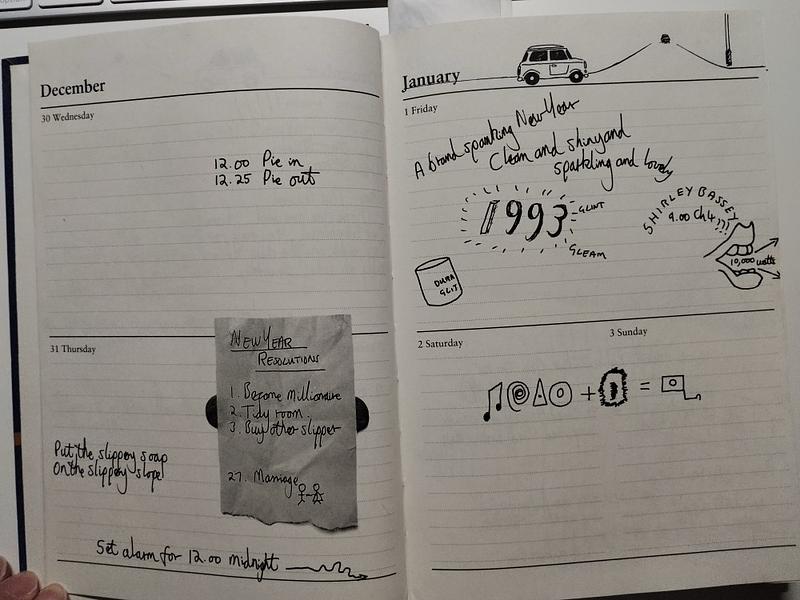 December
30 Wednesday
12.00 Pie in
12.25 Pie out
31 Thursday
NEW YEAR
RESOLUTIONS
1. Become Millionaire
2. Tidy room.
3. Buy other slipper
27. Marriage
Put the slippery soap
On the slippery slope
Set alarm for 12.00 midnight
January
1 Friday
A brand spanking New Year
Clean and shiny and
sparkling and lovely
1993
GLINT
GLEAM
SHIRLEY BASSEY
9.00 Ch4 !!!
10,000 watts
DURA
GLIT
2 Saturday
3 Sunday